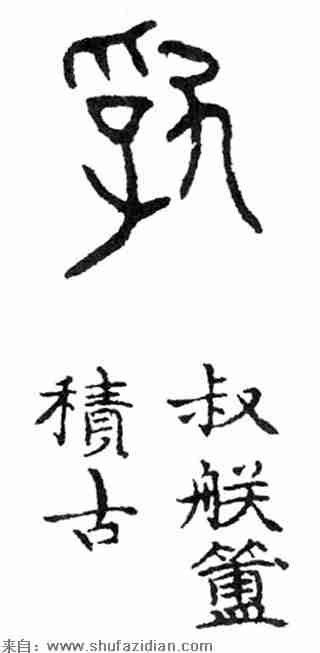 叔朕簠
積古
来自：www.shufazidian.com